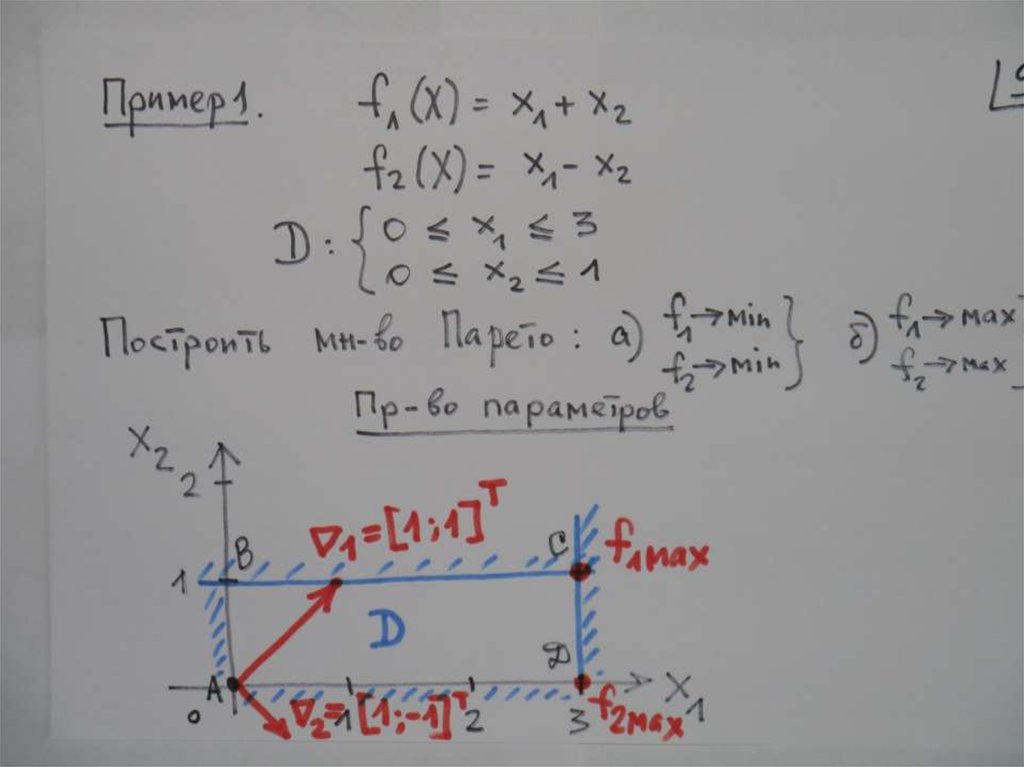 Пример 1. f₁(X) = x₁ + x₂
f₂(X) = x₁ - x₂
D: { 0 ≤ x₁ ≤ 3
0 ≤ x₂ ≤ 1
Построить мн-во Парето: а) f₁→min } б) f₁→max
f₂→min f₂→max
Пр-во параметров
X₂
2
∇₁=[1;1]ᵀ
B C f₁max
1
D
A D
0 ∇₂=[1;-1]ᵀ 1 2 3 f₂max X₁